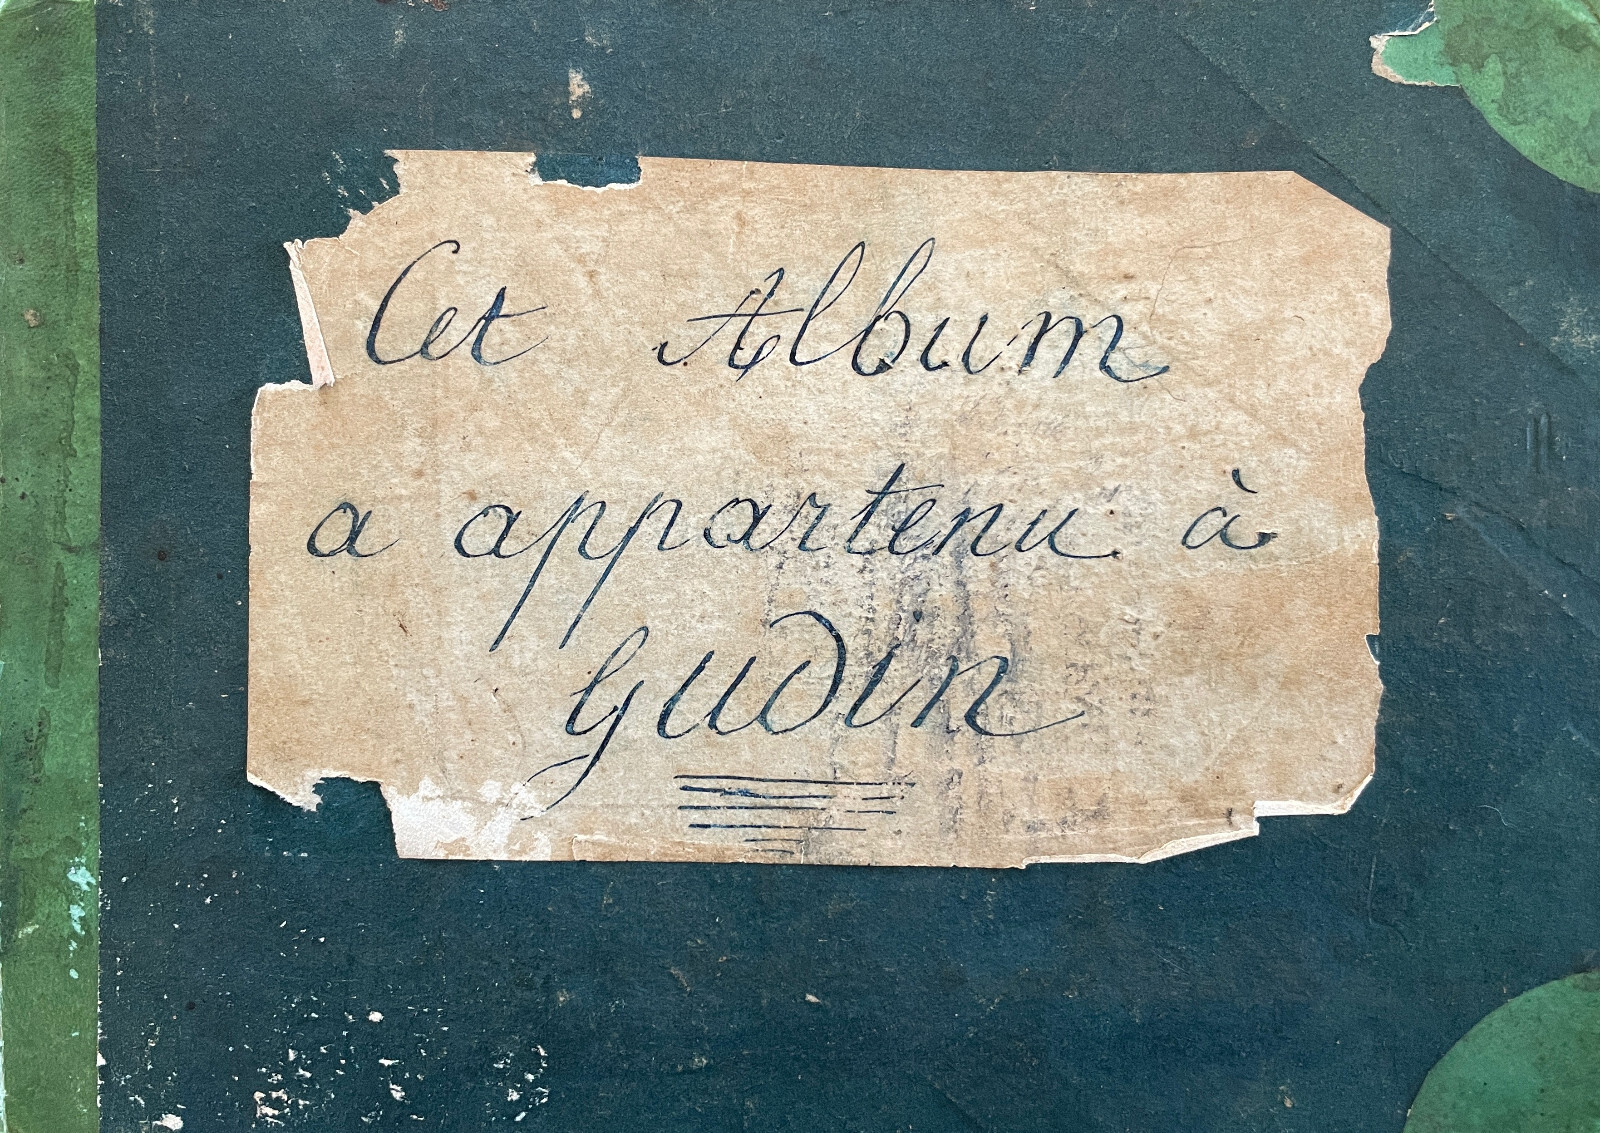 Cet Album
a appartenu à
Gudin